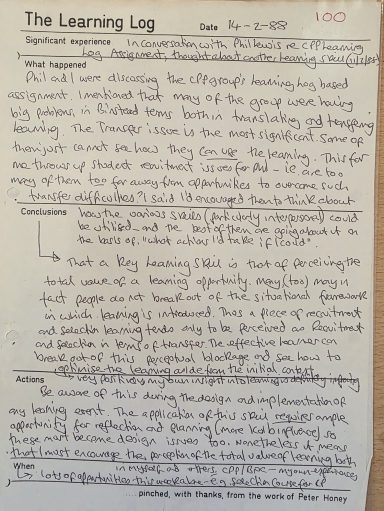 The Learning Log
Date 14-2-88
100
Significant experience In conversation with Phil Lewis re CPP Learning
Log Assignment, thought about another Learning Skill (11/2/88)
What happened
Phil and I were discussing the CPP group's learning log based
assignment. I mentioned that many of the group were having
big problems, in Binstead terms both in translating and transferring
learning. The Transfer issue is the most significant. Some of
them just cannot see how they can use the learning. This for
me throws up student recruitment issues for Phil - ie. are too
many of them too far away from opportunities to overcome such
transfer difficulties? I said I'd encouraged them to think about
how the various skills (particularly interpersonal) could
be utilised - and the best of them are going about it on
the basis of, "what actions I'd take if I could".
Conclusions
That a Key Learning Skill is that of perceiving the
total value of a learning opportunity. Many (too) many in
fact people do not break out of the situational framework
in which learning is introduced. Thus a piece of recruitment
and selection learning tends only to be perceived as Recruitment
and Selection in terms of transfer. The effective learner can
break out of this perceptual blockage and see how to
optimise the learning aside from the initial context.
very positively my own insight into learning is definitely
Actions
Be aware of this during the design and implementation of
any learning event. The application of this skill requires ample
opportunity for reflection and planning (more Kolb influence) so
these must become design issues too. Nonetheless it means
that I must encourage the perception of the total value of learning both
in myself and others,
When
lots of opportunities this week alone - e.g. Selection Course for
....pinched, with thanks, from the work of Peter Honey